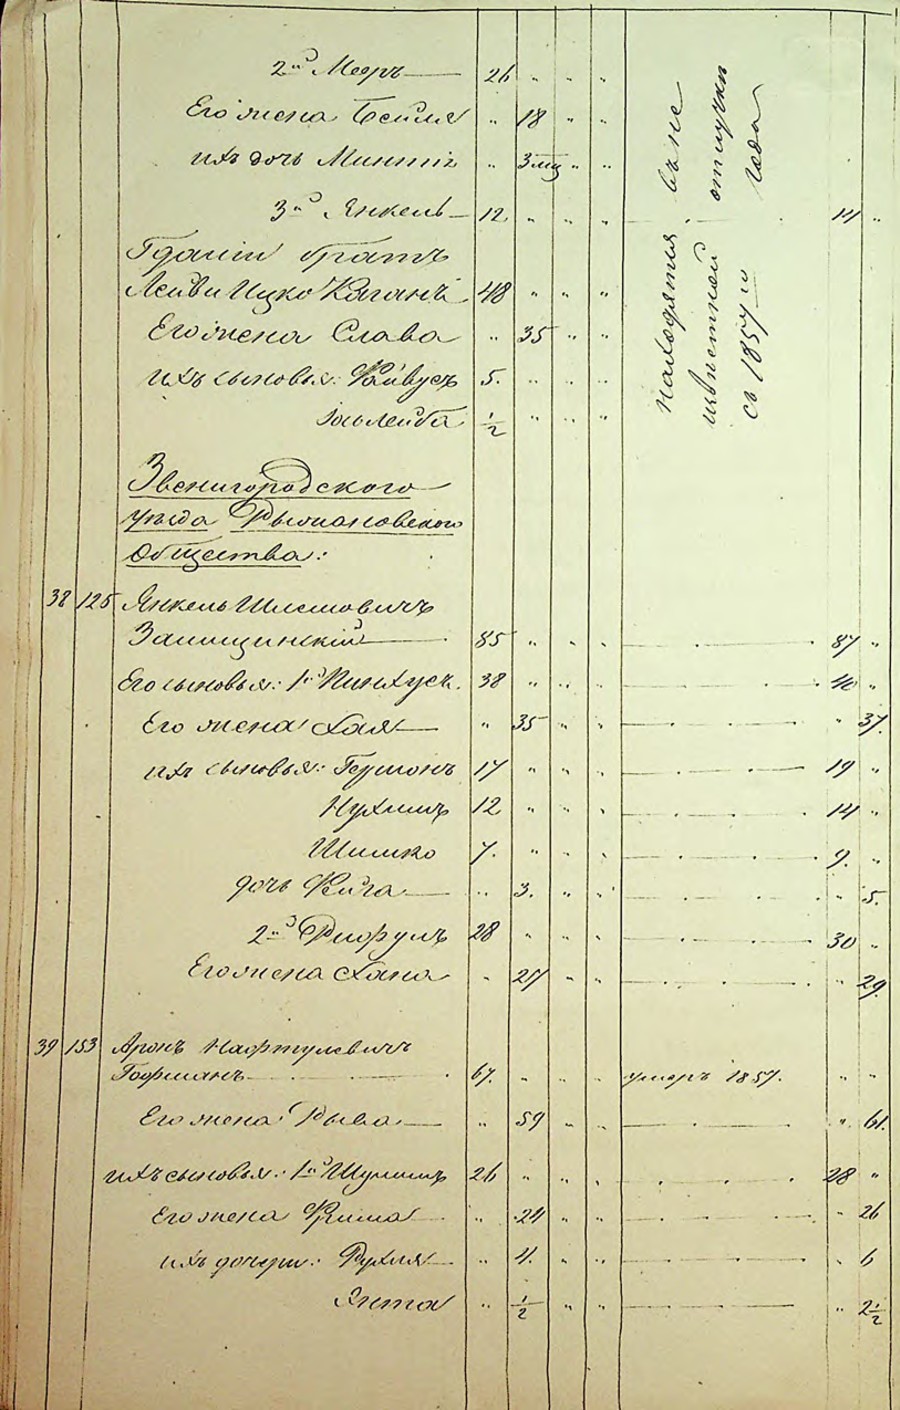 2й Меэръ 26 " " "
Его жена Бейля " 18 " "
ихъ дочь Минтя " 3 мц " "
3й Янкель 12 " " " 14 "
братъ
Лейви Ицко Каганъ 48 " " "
Его жена Слава " 35 " "
ихъ сыновья: Файвусъ 5. " " "
Іось Лейба 1/2 " " "
находятся въ не
извѣстной отлучки
съ 1857 го года
Звенигородского
уѣзда Рыжановского
Общества:
38 125 Янкель Шлемовичъ
Залищинскій 85 " " " 87 "
Его сыновья: 1й Пинхусъ. 38 " " " 40 "
Его жена Хая " 35 " " " 37.
ихъ сыновья: Гершонъ 17 " " " 19 "
Нухимъ 12 " " " 14 "
Шимко 7. " " " 9. "
дочь Фейга " 3. " " " 5.
2й Рафулъ 28 " " " 30 "
Его жена Хана " 27 " " " 29.
39 153 Аронъ Нафтулевичъ
Гофманъ 67. " " " умеръ 1857. " "
Его жена Рыва " 59 " " " 61.
ихъ сыновья: 1й Шулимъ 26 " " " 28 "
Его жена Фрима " 24 " " " 26
ихъ дочери: Рухля " 4. " " " 6
Янта " 1/2 " " " 2 1/2